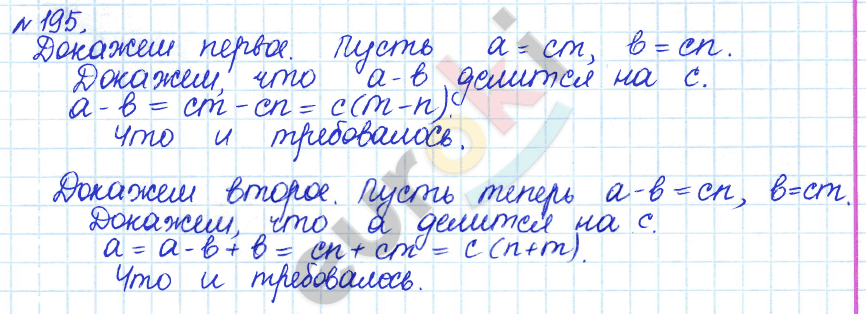 №195.
Докажем первое. Пусть a = cm, b = cn.
Докажем, что a-b делится на c.
a - b = cm - cn = c(m-n).
Что и требовалось.
Докажем второе. Пусть теперь a-b = cn, b=cm.
Докажем, что a делится на c.
a = a-b + b = cn + cm = c(n+m).
Что и требовалось.
euroki